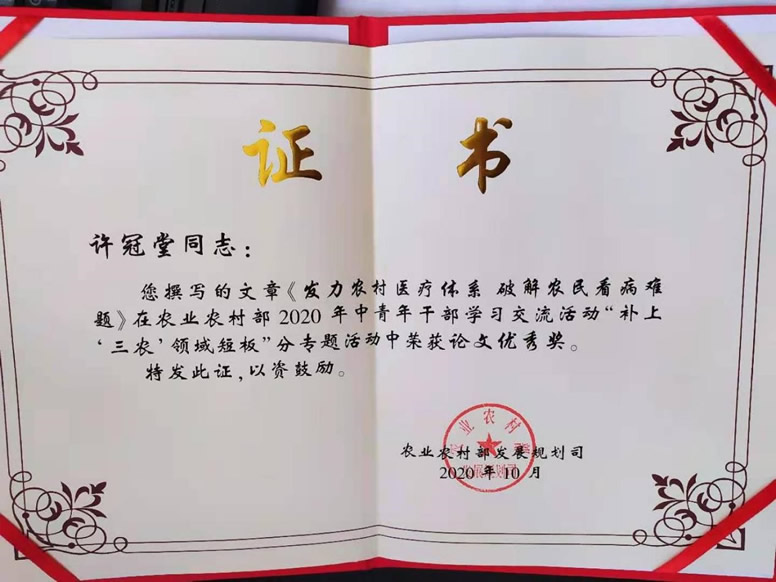 证 书
许冠堂同志：
您撰写的文章《发力农村医疗体系 破解农民看病难
题》在农业农村部2020年中青年干部学习交流活动“补上
‘三农’领域短板”分专题活动中荣获论文优秀奖。
特发此证，以资鼓励。
农业农村部发展规划司
2020年10月